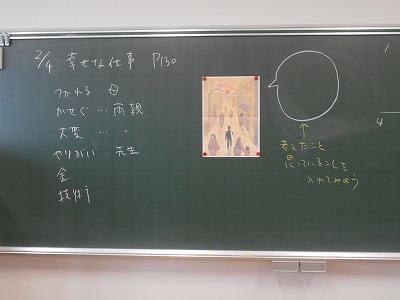 2/4 幸せな仕事 P130
つかれる
かせぐ…両親
大変…〃
やりがい…先生
金
技術
↑
考えたこと
思っていることを
入れてみよう
1
4